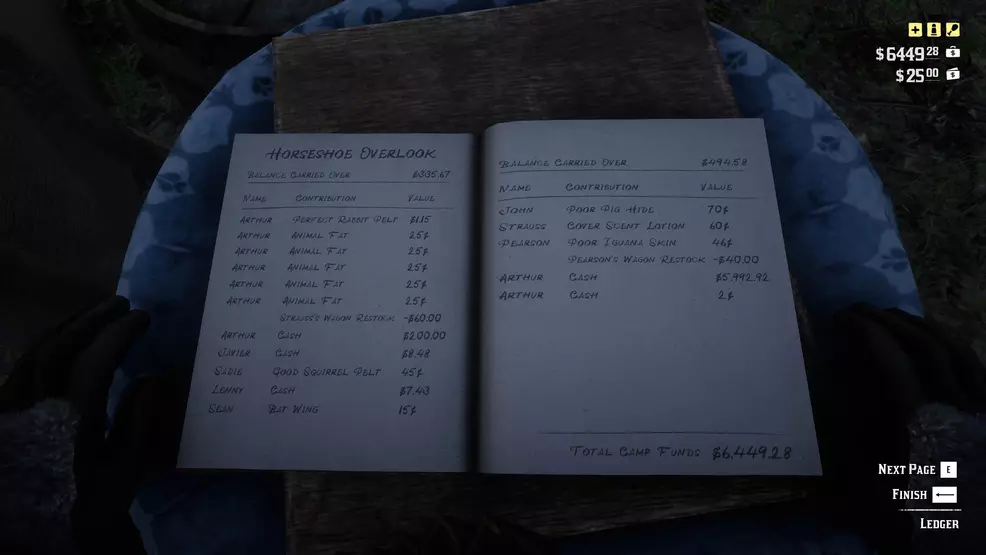 $6449 28
$25 00
HORSESHOE OVERLOOK
BALANCE CARRIED OVER $335.67
NAME CONTRIBUTION VALUE
ARTHUR PERFECT RABBIT PELT $1.15
ARTHUR ANIMAL FAT 25¢
ARTHUR ANIMAL FAT 25¢
ARTHUR ANIMAL FAT 25¢
ARTHUR ANIMAL FAT 25¢
ARTHUR ANIMAL FAT 25¢
STRAUSS'S WAGON RESTOCK -$60.00
ARTHUR CASH $200.00
JAVIER CASH $8.48
SADIE GOOD SQUIRREL PELT 45¢
LENNY CASH $7.43
SEAN BAT WING 15¢
BALANCE CARRIED OVER $494.58
NAME CONTRIBUTION VALUE
JOHN POOR PIG HIDE 70¢
STRAUSS COVER SCENT LOTION 60¢
PEARSON POOR IGUANA SKIN 46¢
PEARSON'S WAGON RESTOCK -$40.00
ARTHUR CASH $5,992.92
ARTHUR CASH 2¢
TOTAL CAMP FUNDS $6,449.28
NEXT PAGE E
FINISH
LEDGER